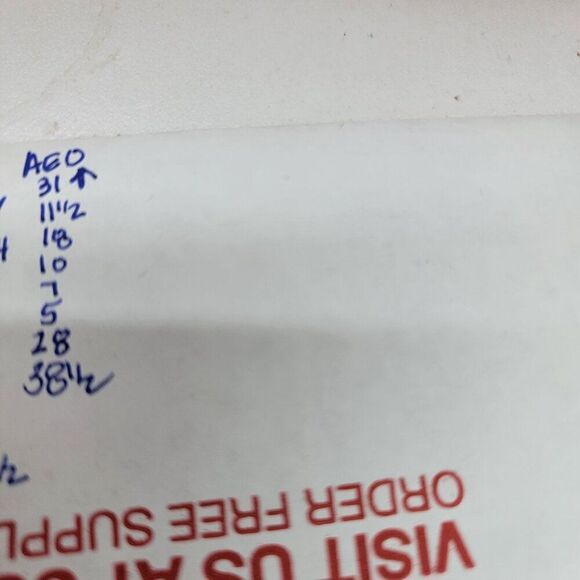 AEO
31 ↑
11 1/2
18
10
7
5
28
38 1/2
1/2
ORDER FREE SUPPL
VISIT US AT